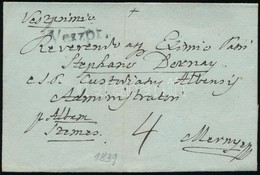 Veszprim
Veszpr.
Reverendo ac Eximio Patri
Stephano Dornay
Custoriatus Albensis
Administratori
p Albam
Szemes 4 Mernye
1839